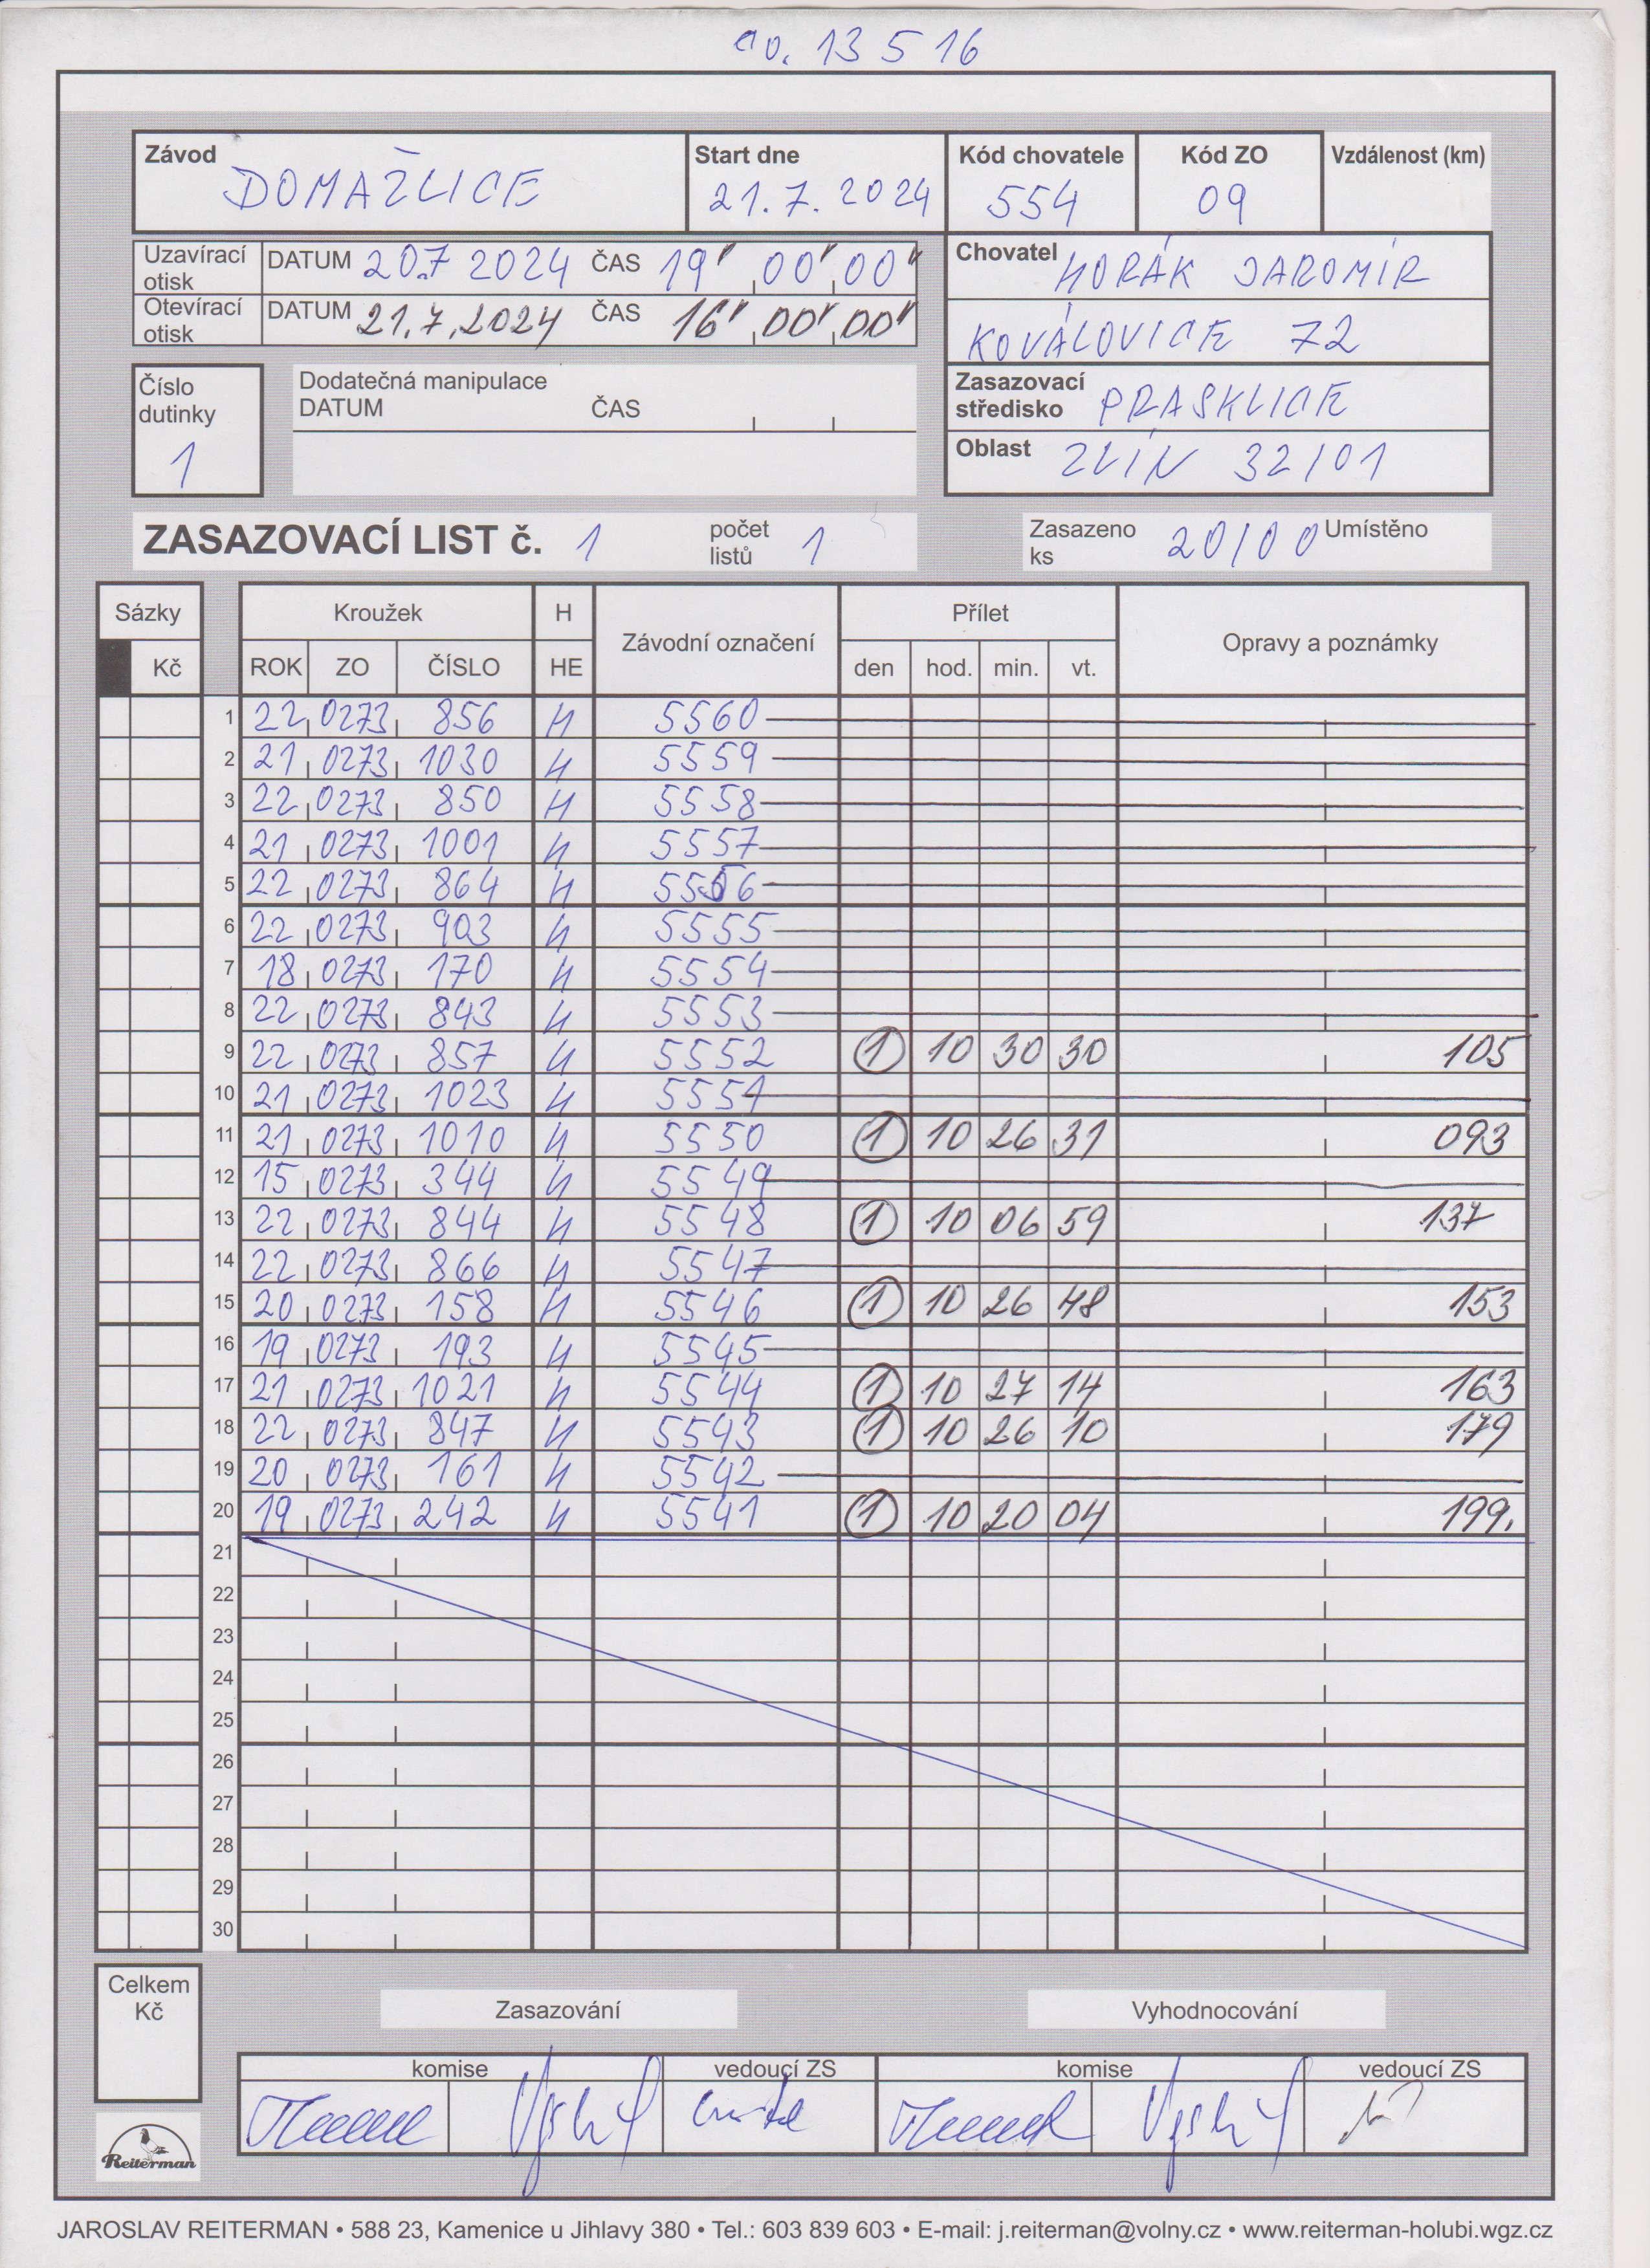 no. 13 5 16
Závod Start dne Kód chovatele Kód ZO Vzdálenost (km)
DOMAŽLICE 21.7.2024 554 09
Uzavírací otisk DATUM 20.7 2024 ČAS 19' 00' 00"
Otevírací otisk DATUM 21.7.2024 ČAS 16' 00' 00"
Chovatel HORÁK JAROMÍR
KOVÁLOVICE 72
Číslo dutinky 1
Dodatečná manipulace
DATUM ČAS
Zasazovací středisko PRASKLICE
Oblast ZLÍN 32/01
ZASAZOVACÍ LIST č. 1 počet listů 1 Zasazeno ks 20/00 Umístěno
Sázky Kroužek H Závodní označení Přílet Opravy a poznámky
Kč ROK ZO ČÍSLO HE den hod. min. vt.
1 22 0273 856 H 5560
2 21 0273 1030 H 5559
3 22 0273 850 H 5558
4 21 0273 1001 H 5557
5 22 0273 864 H 5556
6 22 0273 903 H 5555
7 18 0273 170 H 5554
8 22 0273 843 H 5553
9 22 0273 857 H 5552 1 10 30 30 105
10 21 0273 1023 H 5551
11 21 0273 1010 H 5550 1 10 26 31 093
12 15 0273 344 H 5549
13 22 0273 844 H 5548 1 10 06 59 137
14 22 0273 866 H 5547
15 20 0273 158 H 5546 1 10 26 48 153
16 19 0273 193 H 5545
17 21 0273 1021 H 5544 1 10 27 14 163
18 22 0273 847 H 5543 1 10 26 10 179
19 20 0273 161 H 5542
20 19 0273 242 H 5541 1 10 20 04 199.
21
22
23
24
25
26
27
28
29
30
Celkem Kč
Zasazování Vyhodnocování
komise vedoucí ZS komise vedoucí ZS
Reiterman
JAROSLAV REITERMAN • 588 23, Kamenice u Jihlavy 380 • Tel.: 603 839 603 • E-mail: j.reiterman@volny.cz • www.reiterman-holubi.wgz.cz